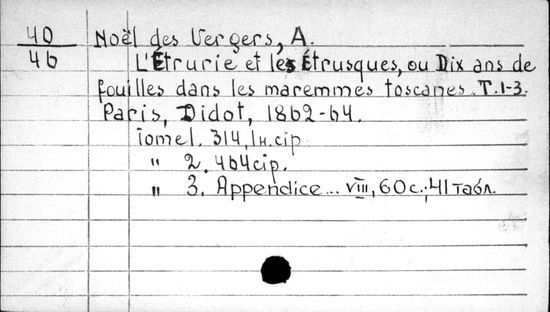 40
46
Noël des Vergers, A.
L'Étrurie et les Étrusques, ou Dix ans de
fouilles dans les maremmes toscanes. T.1-3.
Paris, Didot, 1862-64.
Tome 1. 314, 1н. cтр.
" 2. 464 cтр.
" 3. Appendice... VIII, 60 c.; 41 табл.